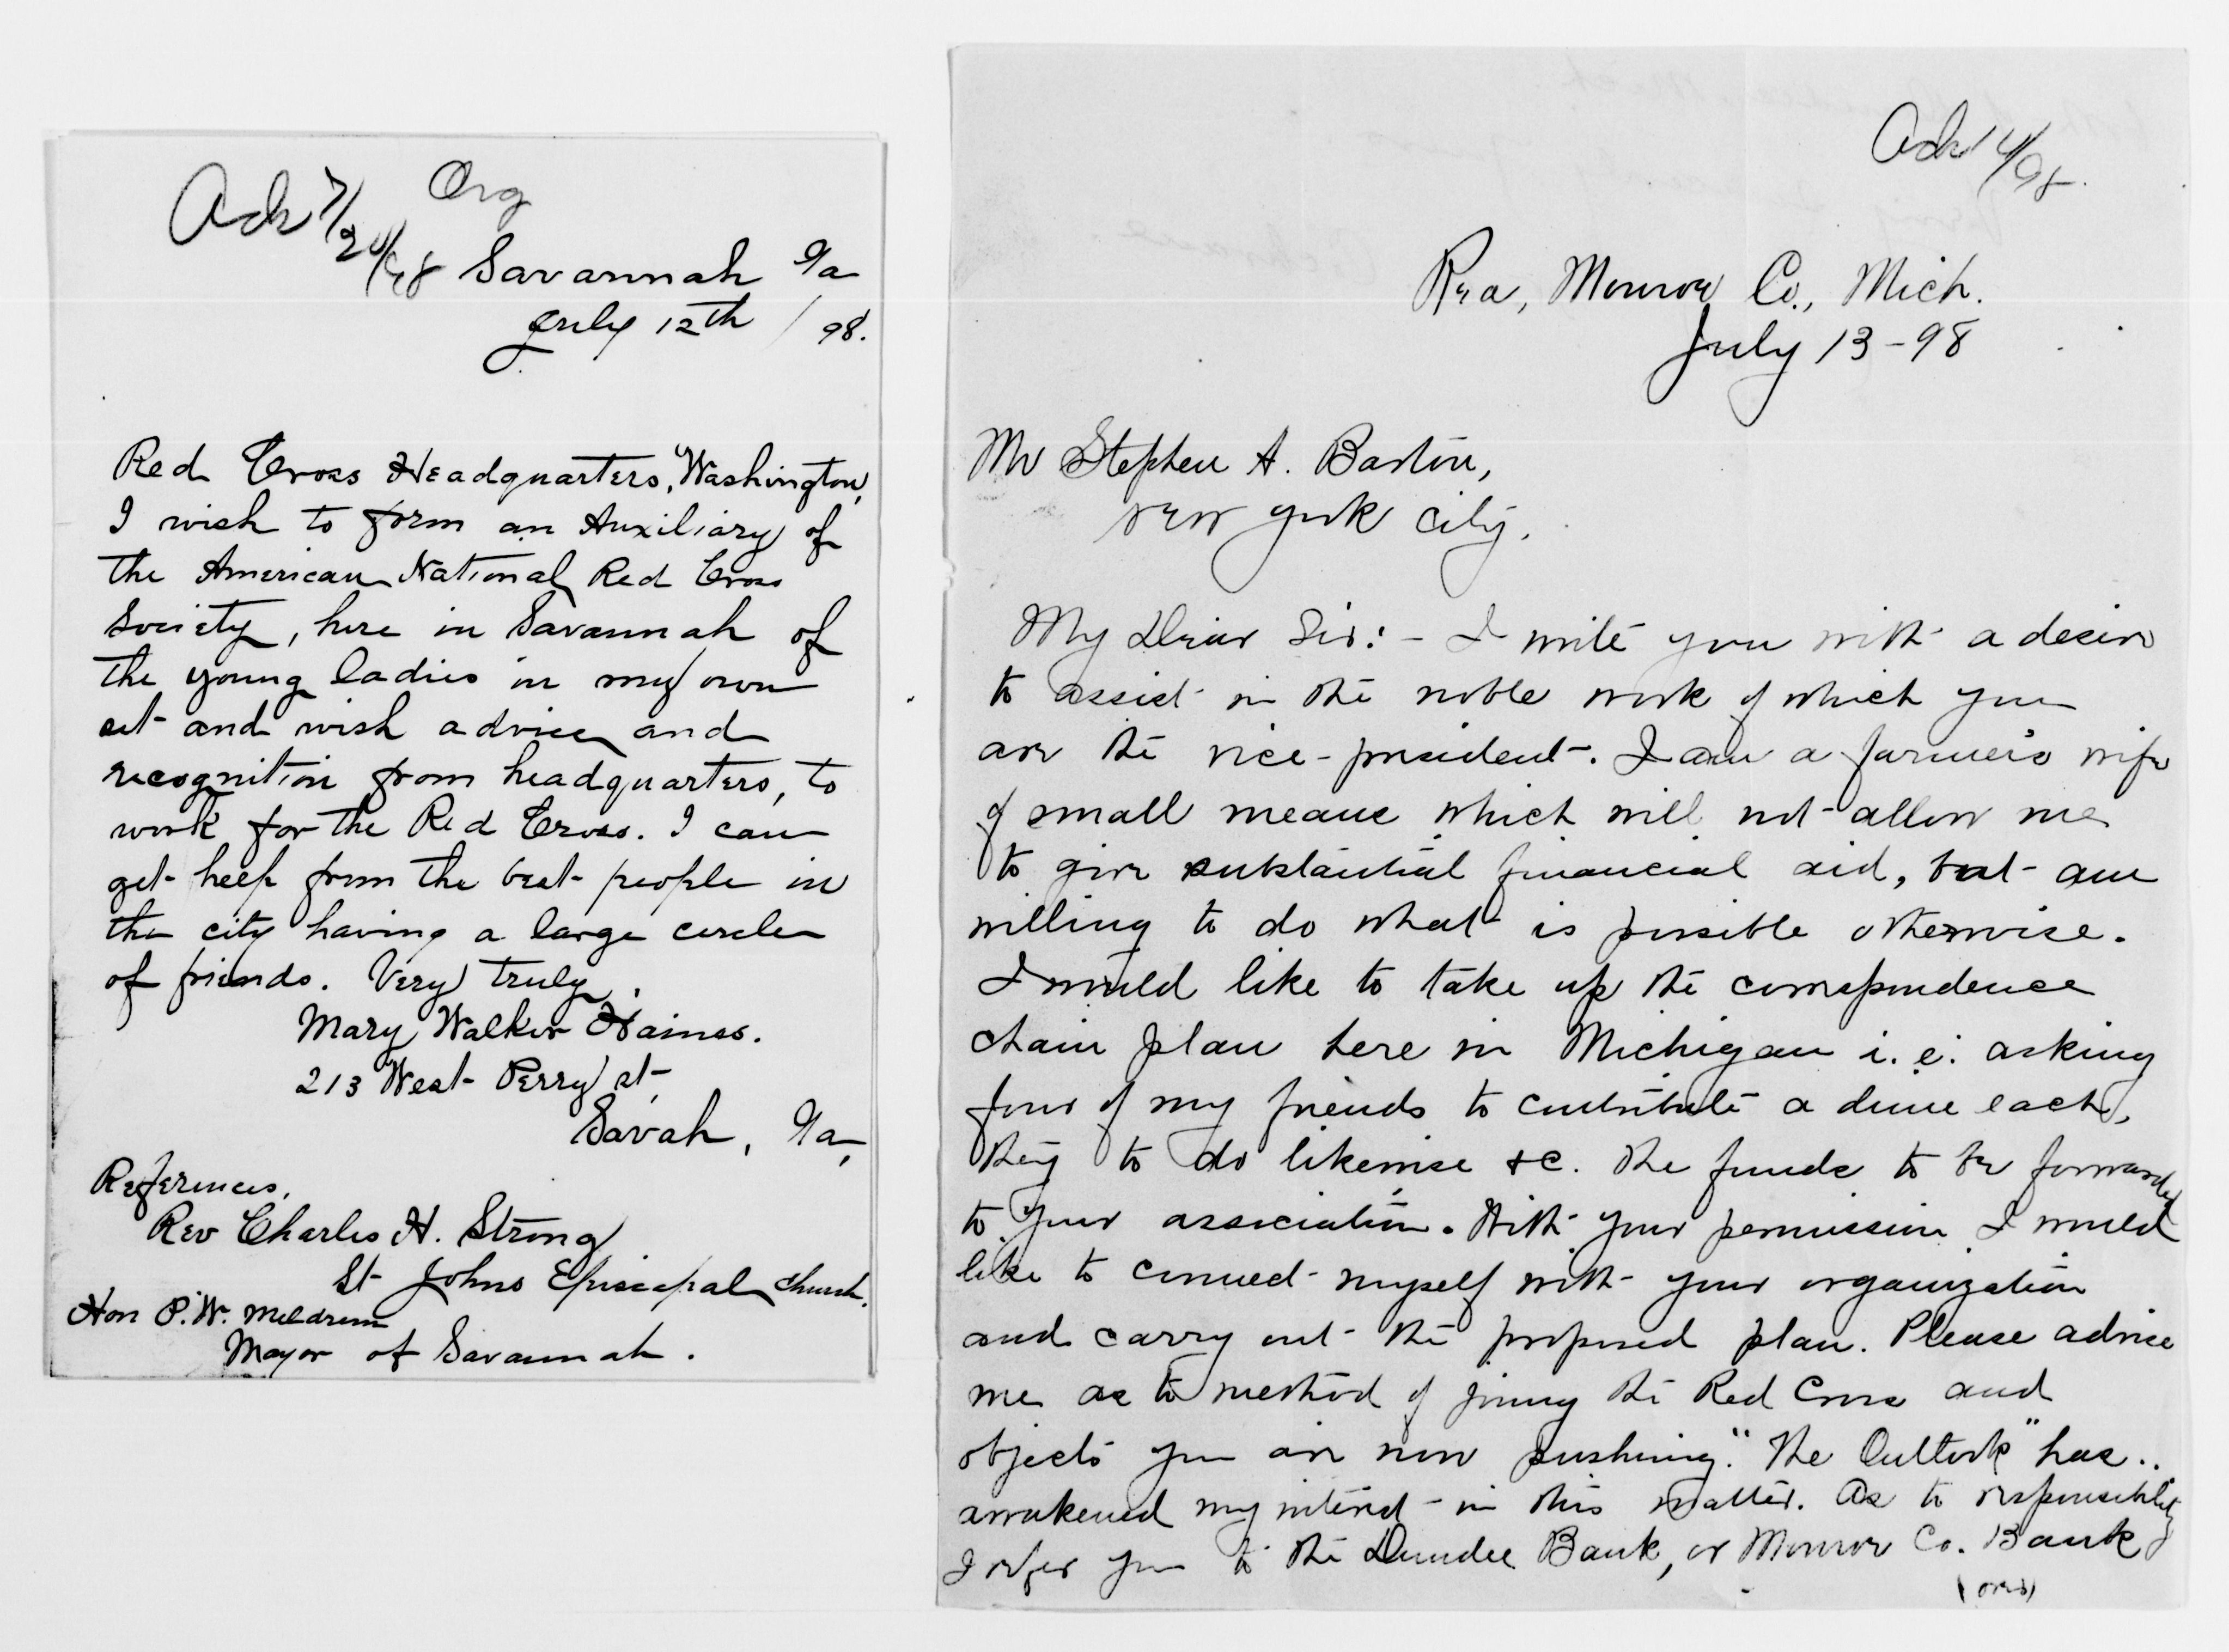 Ack 7/20/98 Org
Savannah Ga
July 12th / 98.
Red Cross Headquarters, Washington,
I wish to form an Auxiliary of
the American National Red Cross
Society, here in Savannah of
the young ladies in my own
set and wish advice and
recognition from headquarters, to
work for the Red Cross. I can
get help from the best people in
the city having a large circle
of friends. Very truly,
Mary Walker Haines.
213 West Perry st
Savah, Ga,
References,
Rev Charles H. Strong
St Johns Episcopal Church.
Hon P. W. Meldrim
Mayor of Savannah.
Ack 14/98.
Rea, Monroe Co., Mich.
July 13-98
Mr Stephen A. Barton,
New York City.
My Dear Sir:- I write you with a desire
to assist in the noble work of which you
are the vice-president. I am a farmer's wife
of small means which will not allow me
to give substantial financial aid, but am
willing to do what is possible otherwise.
I would like to take up the correspondence
chain plan here in Michigan i.e. asking
four of my friends to contribute a dime each,
they to do likewise &c. the funds to be forwarded
to your association. With your permission I would
like to connect myself with your organization
and carry out the proposed plan. Please advise
me as to method of joining the Red Cross and
objects you are now pushing. "The Outlook" has..
awakened my interest in this matter. As to responsibility
I refer you to the Dundee Bank, or Monroe Co. Bank
(over)